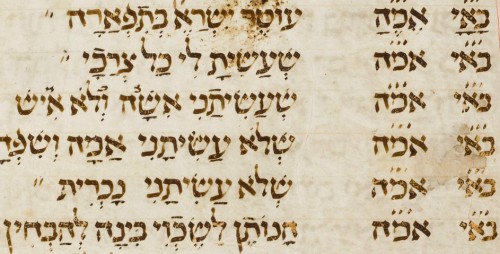 בָּאַ״י אמ״ה עוֹטֵר יִשְׂרָא׳ בְּתִפְאָרָה
בא״י אמ״ה שֶׁעָשִׂיתָ לִי כָּל צְרָכַי
בא״י אמ״ה שֶׁעֲשִׂיתַנִי אִשָּׁה וְלֹא אִישׁ
בא״י אמ״ה שֶׁלֹּא עֲשִׂיתַנִי אָמָה
בא״י אמ״ה שֶׁלֹּא עֲשִׂיתַנִי נָכְרִית
בא״י אמ״ה הַנּוֹתֵן לַשֶּׂכְוִי בִּינָה לְהַבְחִין